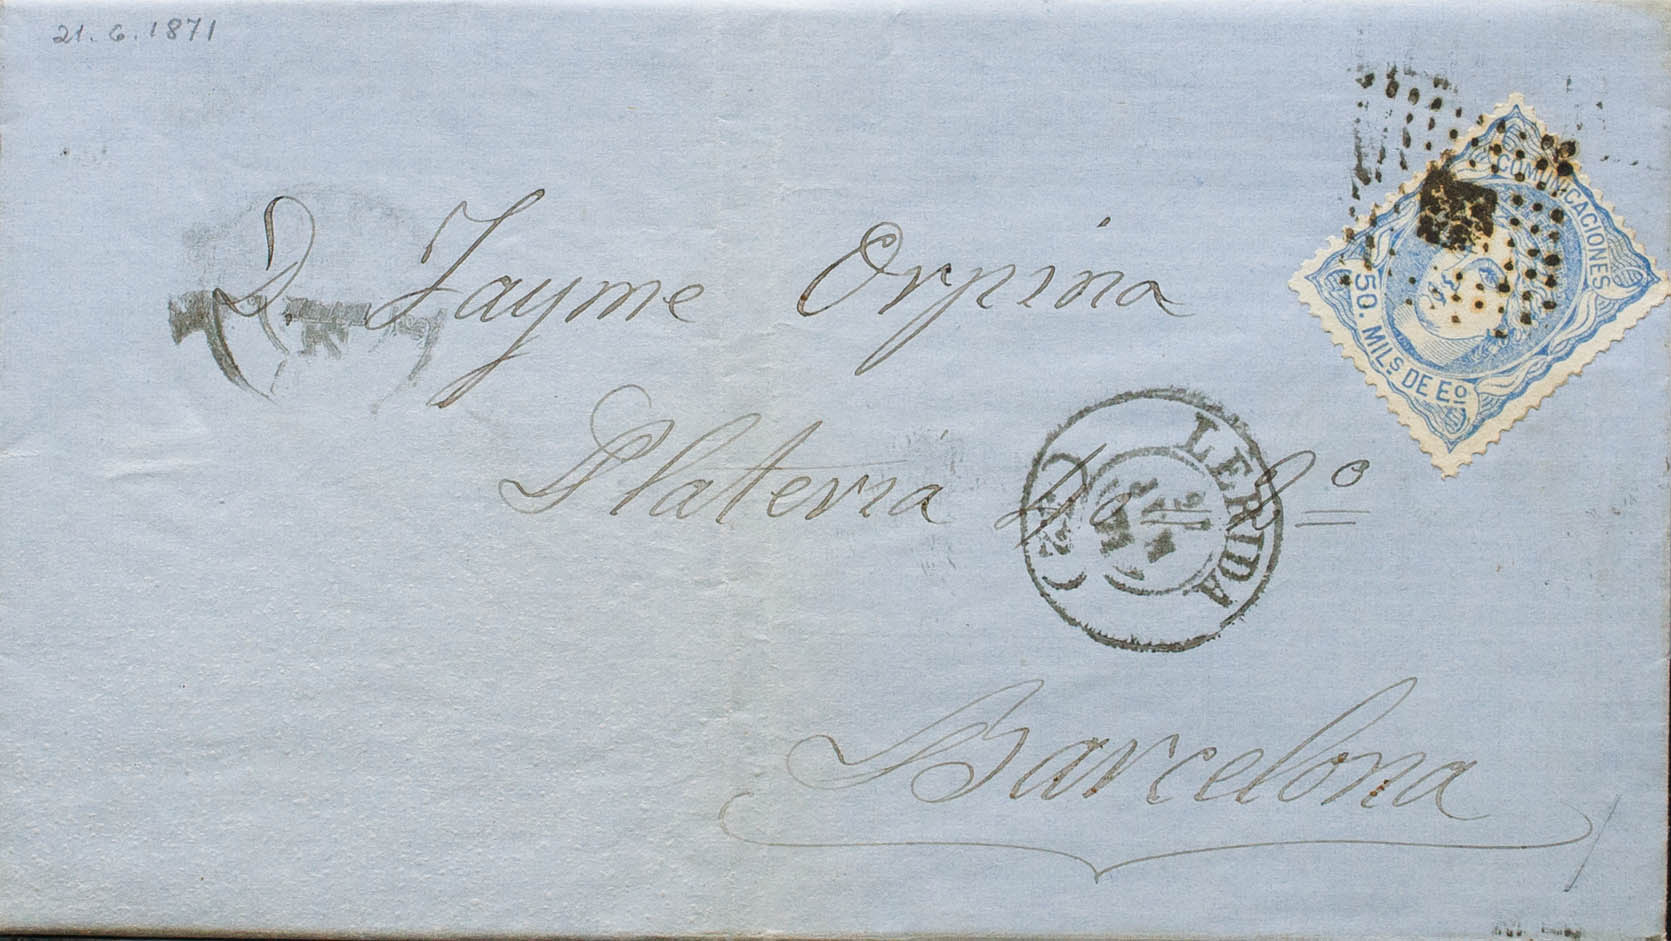 21. 6. 1871
COMUNICACIONES
50. MILS DE EO
D. Jayme Orpina
Plateria 40 2º
LERIDA
Barcelona